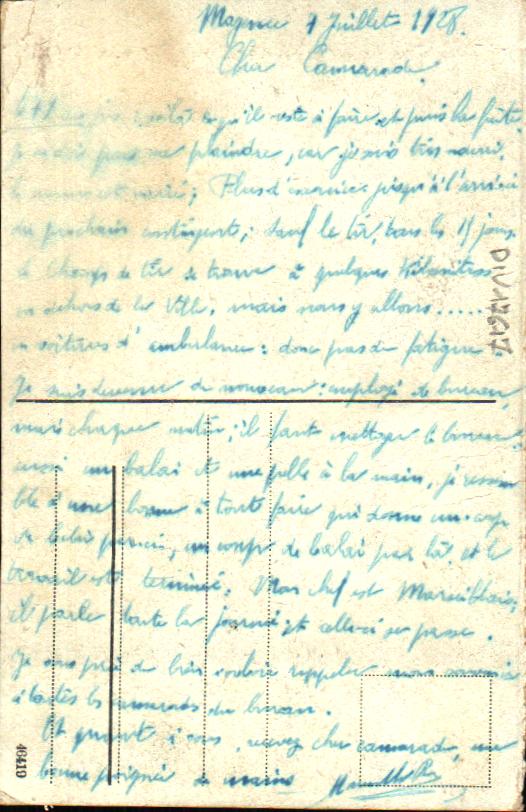 7 Juillet 1928.
Cher Camarade.
voilà ce qu'il reste à faire et puis la fuite
plaindre, car je suis très nourri,
Plus d'exercice jusqu'à l'arrivée
du prochain contingent; sauf le tir, tous les 15 jours.
Le Champ de tir se trouve à quelques kilomètres
en dehors de la Ville, mais nous y allons.....
en voitures d'ambulance: donc pas de fatigue.
Je suis devenu de nouveau: employé de bureau,
mais chaque matin, il faut nettoyer le bureau
aussi un balai et une pelle à la main, je ressem
ble à une bonne à tout faire qui donne un coup
de balai par ci, un coup de balai par là et le
travail est terminé. Mon chef est Marseillais;
il parle toute la journée et celle-ci se passe.
Je vous prie de bien vouloir rappeler mon souvenir
à toutes les camarades du bureau.
Et quant à vous, recevez cher camarade, une
bonne poignée de mains
DIV12617
46419